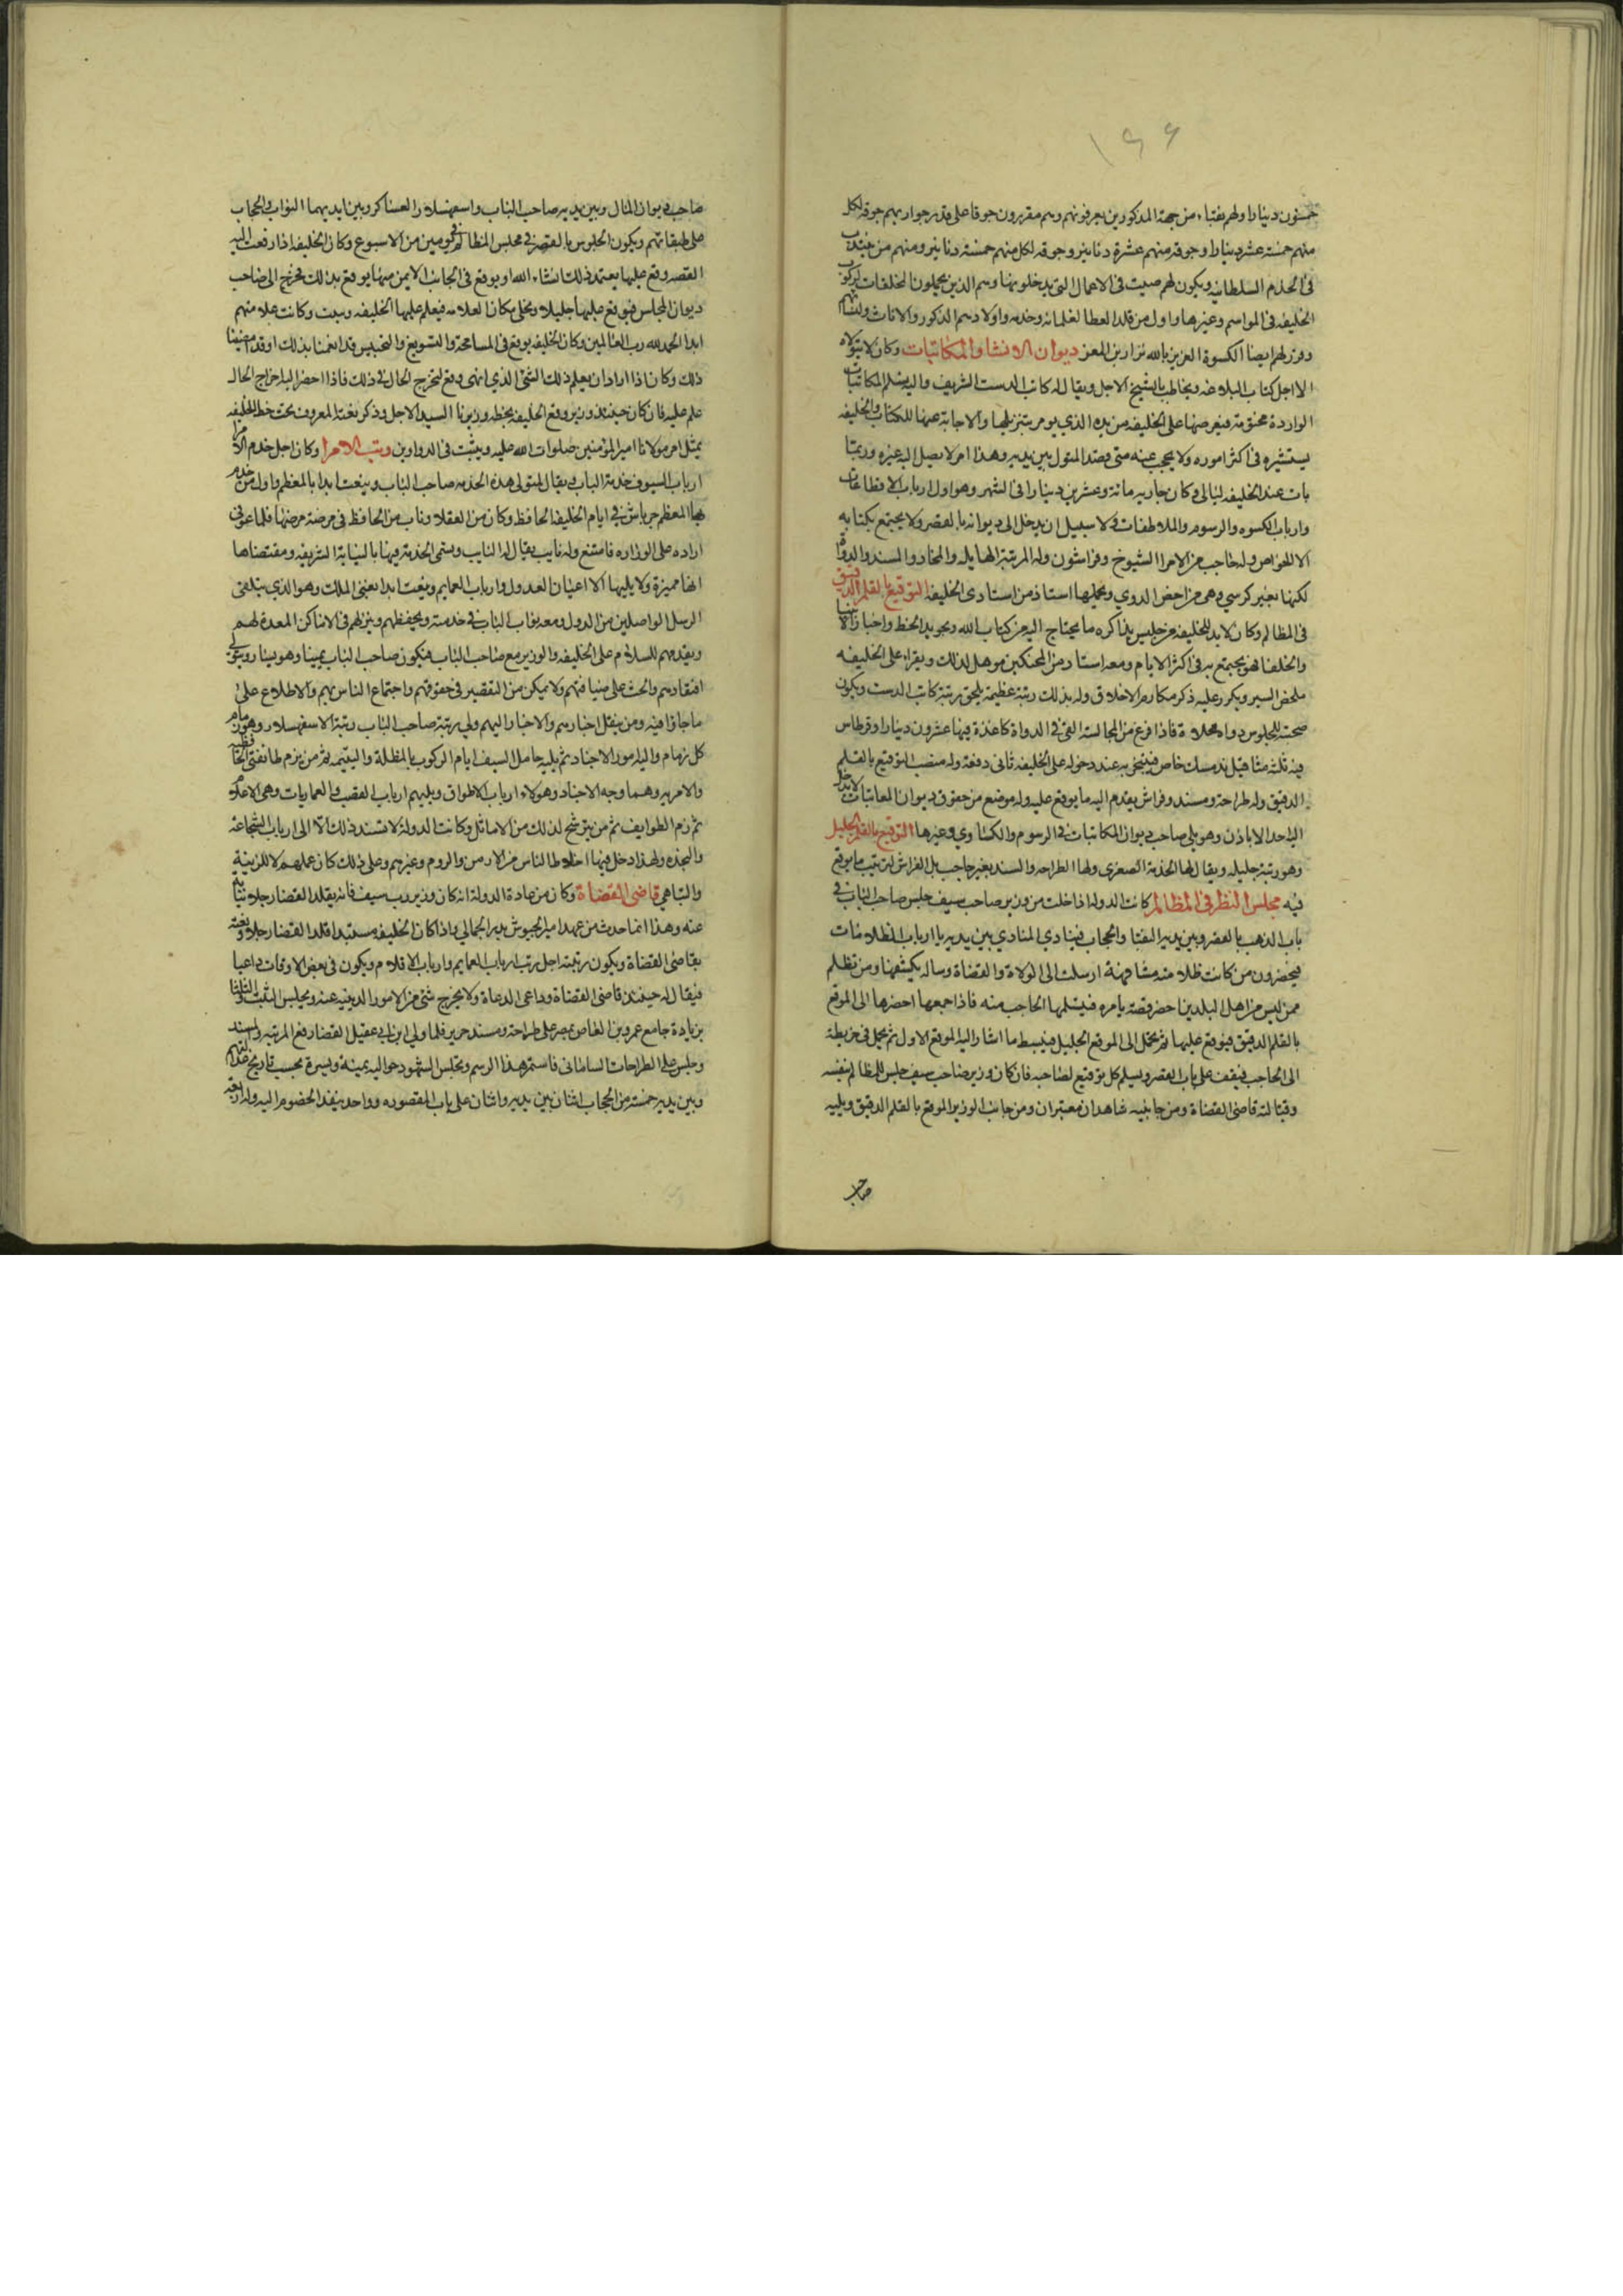 ١٩٩
خمسون دينارا ولهم نقباء من جهة المذكورين يعرفونهم وهم مقررون جوقا على قدر جواريهم جوقه لكل
منهم خمسة عشر دينارا وجوقه منهم عشرة دنانير وجوقه لكل منهم خمسة دنانير ومنهم من ينتدب
فى الخدم السلطانيه ويكون لهم صيت فى الاعمال التى يدخلونها وهم الذين يحملون الملحقات لركوب
الخليفه فى المواسم وغيرها واول من قلد العطا لغلمانه وخدمه واولادهم الذكور والاناث ولنسائهم
وقرر لهم ايضا الكسوة العزيز بالله نزار بن المعز ديوان الانشا والمكاتبات وكان لا يتولاه
الا اجل كتاب البلاغه ويخاطب بالشيخ الاجل ويقال له كاتب الدست الشريف واليه يسلم المكاتبات
الواردة مختومة فيعرضها على الخليفه من يده الذي يومر بتنزيلها والاجابة عنها للكتاب والخليفه
يستشيره فى اكثر اموره ولا يحجب عنه متى قصد المثول بين يديه وهذا امر لا يصل اليه غيره وربما
بات عند الخليفه ليالى وكان جاريه مائة وعشرين دينارا فى الشهر وهو اول ارباب الاقطاعات
وارباب الكسوه والرسوم والملاطفات ولا سبيل ان يدخل الى ديوانه بالقصر ولا يجتمع بكتابه
الا الخواص وله حاجب من الامرا الشيوخ وفراشون وله المرتبة الهايله والمخاد والمسند والدواه
لكنها بغير كرسي وهى من اخص الدوي ويحملها استاذ من استادى الخليفه التوقيع بالقلم الدقيق
فى المظالم وكان لا بد للخليفه من جليس يذاكره ما يحتاج اليه من كتاب الله وتجويد الخط واخبار الانبيا
والخلفا فهو يجتمع به فى اكثر الايام ومعه استاد من المحنكين موهل لذلك ويقراء على الخليفه
ملخص السير ويكرر عليه ذكر مكارم الاخلاق وله بذلك رتبة عظيمة يلحق برتبة كاتب الدست ويكون
صحبته للجلوس دواه محلاة فاذا فرغ من المجالسه القى فى الدواة كاغذة فيها عشرون دينارا وقرطاس
فيه ثلثه مثاقيل ند مسك خاص فيتبخر به عند دخوله على الخليفه ثانى دفعة وله منصب التوقيع بالقلم
الدقيق وله طراحة ومسند وفراش يقدم اليه ما يوقع عليه وله موضع من حقوق ديوان المكاتبات لا يدخل
اليه احد الا باذن وهو يلى صاحب ديوان المكاتبات فى الرسوم والكساوي وغيرها التوقيع بالقلم الجليل
وهو رتبة جليله ويقال لها الخدمة الصغرى ولها الطراحه والمسند بغير حاجب بل الفراش لترتيب ما يوقع
فيه مجلس النظر فى المظالم كانت الدوله اذا خلت من وزير صاحب سيف جلس صاحب الباب فى
باب الذهب بالقصر وبين يديه النقبا والحجاب فينادي المنادي بين يديه يا ارباب الظلامات
فيحضرون من كانت ظلامته مشافهة ارسلت الى الولاة والقضاة رساله بكشفها ومن تظلم
ممن ليس من اهل البلدين احضر قصة بامره فيتسلمها الحاجب منه فاذا جمعها احضرها الى الموقع
بالقلم الدقيق فيوقع عليها ثم تحمل الى الموقع الجليل فيبسط ما اشار اليه الموقع الاول ثم تحمل فى خريطة
الى الحاجب فيقف على باب القصر ويسلم كل توقيع لصاحبه فان كان وزير صاحب سيف جلس للمظالم بنفسه
وقبالته قاضى القضاة ومن جانبيه شاهدان معتبران ومن جانب الوزير الموقع بالقلم الدقيق ويليه
صاحب
صاحب ديوان المال وبين يديه صاحب الباب واسفهسلار العساكر وبين ايديهما النواب والحجاب
على طبقاتهم ويكون الجلوس بالقصر فى مجلس المظالم فى يومين من الاسبوع وكان الخليفه اذا رفعت اليه
القصه وقع عليها يعتمد ذلك انشاء الله او يوقع فى الجانب الايمن منها يوقع بذلك فتخرج الى صاحب
ديوان المجلس فيوقع عليها جليلا ويخلى مكان العلامه فيعلم عليها الخليفه ويثبت وكانت علامتهم
ابدا الحمد لله رب العالمين وكان الخليفه يوقع فى المسامحة والتسويغ والتحبيس قد انعمنا بذلك او قد امضينا
ذلك وكان اذا اراد ان يعلم ذلك الشى الذي انهى وقع ليخرج الحال فى ذلك فاذا احضر اليه اخراج الحال
علم عليه فان كان حينئذ وزير وقع الخليفه بخطه وزيرنا السيد الاجل وذكر نعته المعروف تحت خط الخليفه
يمتثل امر مولانا امير المؤمنين صلوات الله عليه ويثبت فى الدواوين رتب الامرا وكان اجل خدم الامرا
ارباب السيوف خدمة الباب ويقال لمتولى هذه الخدمه صاحب الباب وينعت ابدا بالمعظم واول من خدم
بها المعظم خرتاش فى ايام الخليفه الحافظ وكان من العقلا وناب من الحافظ فى مرضة مرضها فلما عوفى
اراده على الوزاره فامتنع وله نايب يقال له النايب ويسمى الخدمة فيها بالنيابة الشريفه ومقتضاها
انها مميزة ولا يليها الا اعيان العدول وارباب العمايم وينعت ابدا بغنى الملك وهو الذي يتلقى
الرسل الواصلين من الدول ومعه نواب الباب فى خدمته ويحفظهم وينزلهم فى الاماكن المعدة لهم
ويقدمهم للسلام على الخليفه والوزير مع صاحب الباب فيكون صاحب الباب يمينا وهو يسارا ويتولى
افتقادهم والحث على ضيافتهم ولا يمكن من التقصير فى حقوقهم واجتماع الناس بهم والاطلاع على
ما جاؤا فيه ومن ينقل اخبارهم والاخبار اليهم ويلى رتبة صاحب الباب رتبة الاسفهسلار وهو زمام
كل زمام واليه امور الاجناد ثم يليه حامل السيف ايام الركوب بالمظلة واليتيمه ثم من يزم طائفتى الحافظيه
والامريه وهما وجه الاجناد وهولاء ارباب الاطواق ويليهم ارباب القصب والعماريات وهى الاعلام
ثم زم الطوايف ثم من يترشح لذلك من الاماثل وكانت الدولة لا تسند ذلك الا الى ارباب الشجاعة
والنجده ولهذا دخل فيها اخلاط الناس من الارمن والروم وغيرهم وعلى ذلك كان عملهم لا للزينة
والتباهي قاضى القضاة وكان من عادة الدولة انه كان وزير رب سيف فانه يقلد القضا رجلا نيابة
عنه وهذا انما حدث من عهد امير الجيوش بدر الجمالي واذا كان الخليفه مستبدا قلد القضا رجلا ونعته
بقاضى القضاة ويكون رتبته اجل رتب ارباب العمايم وارباب الاقلام ويكون فى بعض الاوقات داعيا
فيقال له حينئذ قاضى القضاة وداعى الدعاة ولا يخرج شى من الامور الدينيه عنه ويجلس السبت والثلثا
بزيادة جامع عمرو بن العاص بمصر على طراحة ومسند حرير فلما ولي ابن ابى عقيل القضا رفع المرتبه والمسند
وجلس على الطراحات السامانى فاستمر هذا الرسم وتجلس الشهود حواليه يمينة ويسرة بحسب تاريخ عدالتهم
وبين يديه خمسة من الحجاب اثنان بين يديه واثنان على باب المقصوره وواحد ينفذ الخصوم اليه وله اربعة